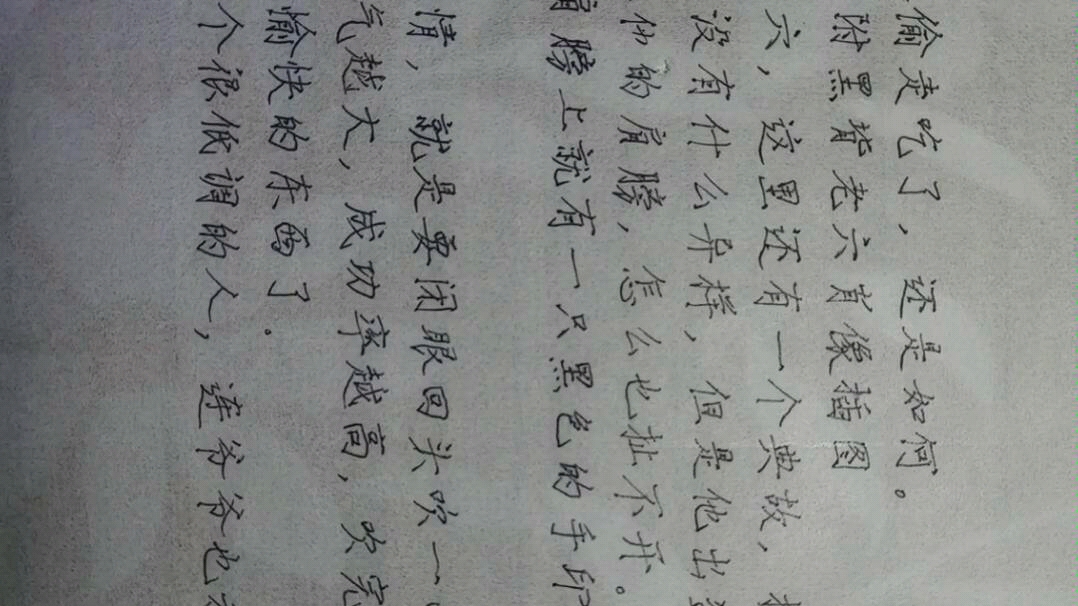 偷走吃了，还是如何。
附黑背老六肖像插图
六，这里还有一个典故，
没有什么异样，但是他出
他的肩膀，怎么也扯不开。
肩膀上就有一只黑色的手印
情，就是要闭眼回头吹一口
气越大，成功率越高，吹完
愉快的东西了.
个很低调的人，连爷爷也